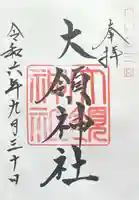 奉拝
大領神社
令和六年九月三十日